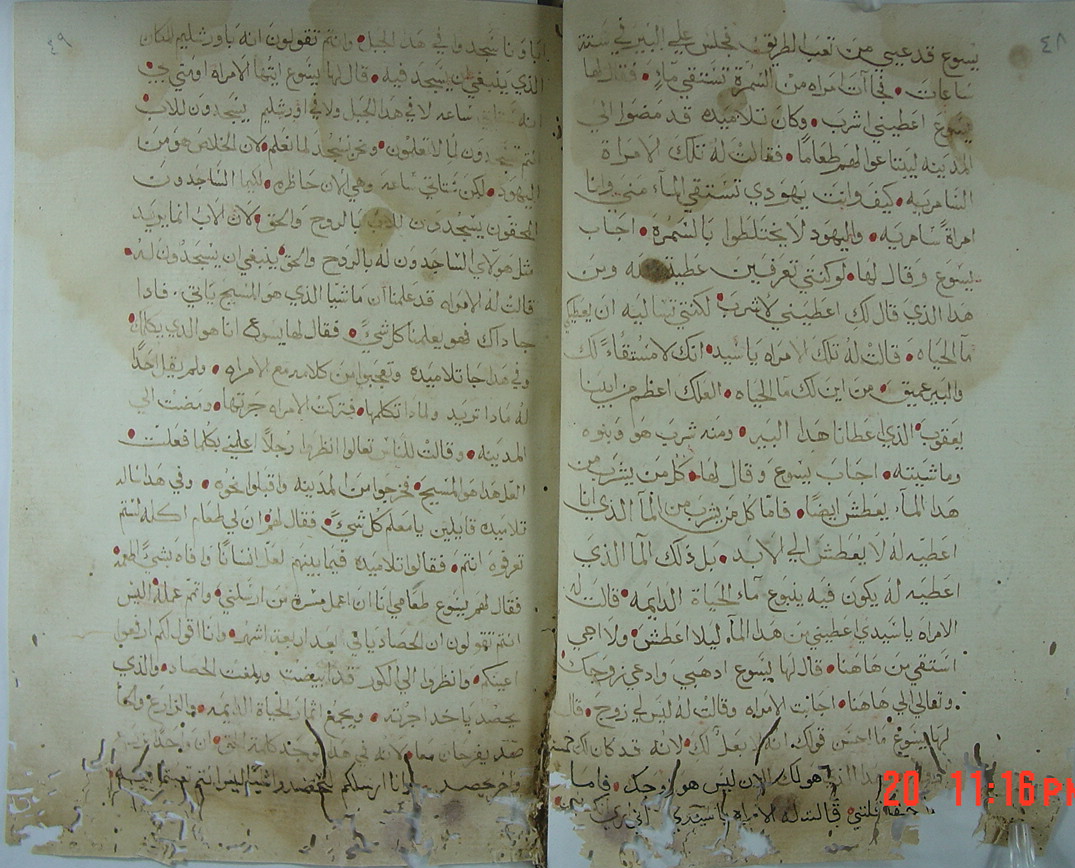 ٤٨
يسوع قد عيي من تعب الطريق فجلس علي البير في ستة
ساعات فجاآت امراه من السمرة تستقي مآ فقال لها
يسوع اعطيني اشرب وكان تلاميذه قد مضوا الي
المدينه ليبتاعوا لهم طعاما فقالت له تلك الامراة
السامريه كيف وانت يهودي تستقي المآء مني وانا
امراة سامريه واليهود لا يختلطوا بالسمرة اجاب
يسوع وقال لها لو كنتي تعرفين عطية الله ومن
هدا الدي قال لك اعطيني لاشرب لكنتي تساليه ان يعطيك
مآ الحياه قالت له تلك الامراه يا سيد انك لا مستقاء لك
والبير عميق من اين لك ما الحياه العلك اعظم من ابينا
يعقوب الدي اعطانا هدا البير ومنه شرب هو وبنوه
وماشيته اجاب يسوع وقال لها كل من يشرب من
هدا المآ يعطش ايضا فاما كل من يشرب من المآ الدي انا
اعطيه له لا يعطش الي الابد بل دلك المآ الدي
اعطيه له يكون فيه ينبوع مآء الحياة الدايمه قالت له
الامراه يا سيدي اعطيني من هدا المآ ليلا اعطش ولا اجي
استقي من هاهنا قال لها يسوع ادهبي وادعي زوجك
وتعالي الي هاهنا اجابت الامراه وقالت له ليس لي زوج قال
لها يسوع ما احسن قولك انه لا بعل لك لانه قد كان لك خمسه
هو لك الان ليس هو زوجك فاما
حقا قلتي قالت له الامراه يا سيدي اني
٤٩
اباونا سجدوا في هدا الجبل وانتم تقولون انه باورشليم المكان
الدي ينبغي ان يسجد فيه قال لها يسوع ايتها الامراه اومني بي
انه ستاتي ساعه لا في هدا الجبل ولا في اورشليم يسجدون للاب
انتم تسجدون لما لا تعلمون ونحن نسجد لما نعلم لان الخلاص هو من
اليهود لكن ستاتي ساعه وهي الان حاظره لكيما الساجدون
المحقون يسجدون للاب بالروح والحق لان الاب انما يريد
مثل هولاي الساجدون له بالروح والحق ينبغي ان يسجدون له
قالت له الامراه قد علمنا ان ماشيا الدي هو المسيح ياتي فادا
جا داك فهو يعلمنا كل شي فقال لها يسوع انا هو الدي يكلمك
وفي هدا جا تلاميده وتعجبوا من كلامه مع الامراه ولم يقل احدا
له مادا تريد ولمادا تكلمها فتركت الامراه جرتها ومضت الي
المدينه وقالت للناس تعالوا انظروا رجلا اعلمني بكلما فعلت
العل هدا هو المسيح فخرجوا من المدينه واقبلوا نحوه وفي هدا ساله
تلاميده قايلين يا معلم كل شي فقال لهم ان لي طعام اكله لستم
تعرفوه انتم فقالوا تلاميده فيما بينهم لعل انسانا وافاه بشي اطعمه
فقال لهم يسوع طعامي انا ان اعمل مسرة من ارسلني واتمم عمله اليس
انتم تقولون ان الحصاد ياتي بعد اربعة اشهر وانا اقول لكم ارفعوا
اعينكم وانظروا الي الكور قد ابيضت وبلغت الحصاد والدي
يحصد ياخد اجرته ويجمع اثمار الحياة الدايمه والزارع
يفرحان معا لانه في هدا توجد كلمة الحق ان واحدا
واخر يحصد وانا ارسلكم لتحصدوا شيا ليس انتم تعبتم فيه
20 11:16 PM